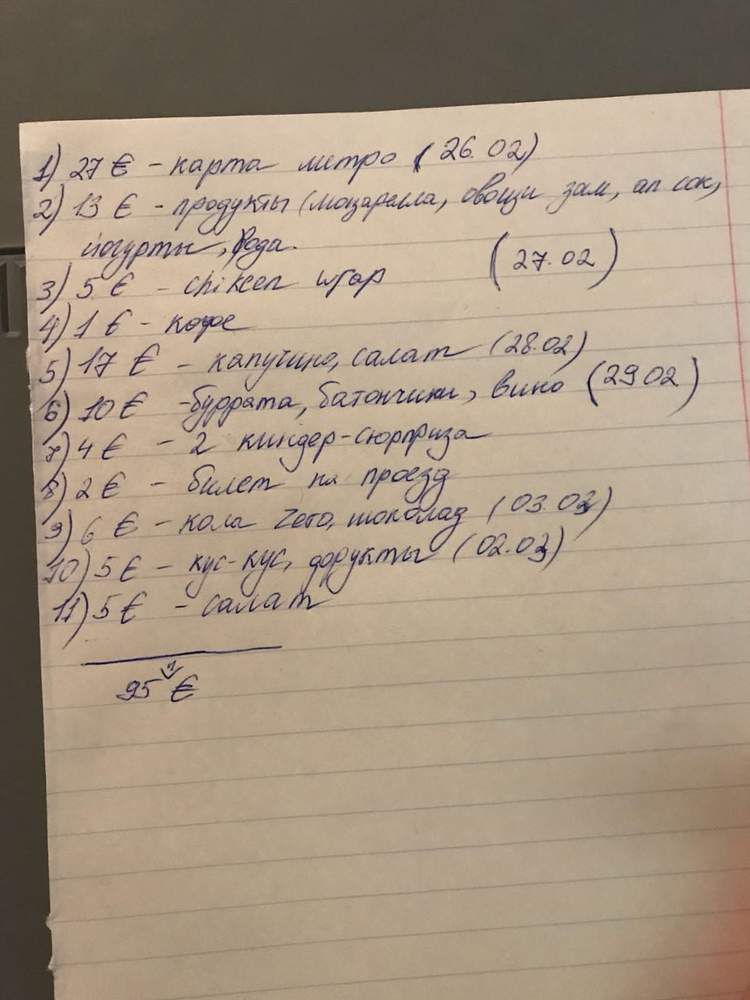 1) 27 € - карта метро (26.02)
2) 13 € - продукты (моцарелла, овощи зам, ап сок,
йогурты, вода.
3) 5 € - chiken wrap (27.02)
4) 1 € - кофе
5) 17 € - капучино, салат (28.02)
6) 10 € - буррата, батончики, вино (29 02)
7) 4 € - 2 киндер-сюрприза
8) 2 € - билет на проезд
9) 6 € - кола zero, шоколад (03.03)
10) 5 € - кус-кус, дорукты (02.03)
11) 5 € - салат
95 €